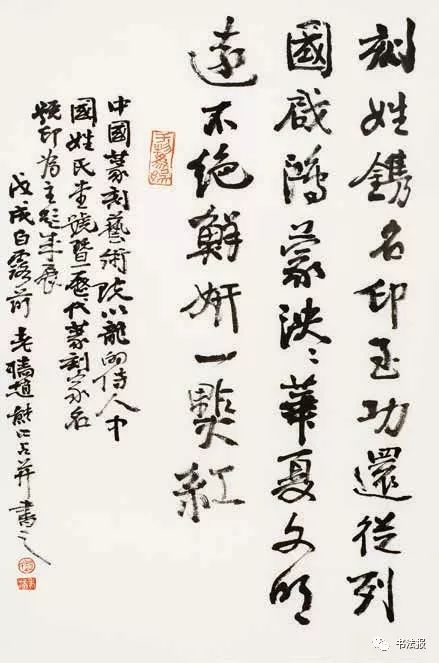 刻姓鐫名印玉功還從列
國啟鴻蒙泱〻華夏文明
遠不絕鮮妍一點紅
中國篆刻藝術院以龍的傳人中
國姓氏堂號暨歷代篆刻家名
號印為主題集展
戊戌白露前 老墻趙熊口占并書之
书法报